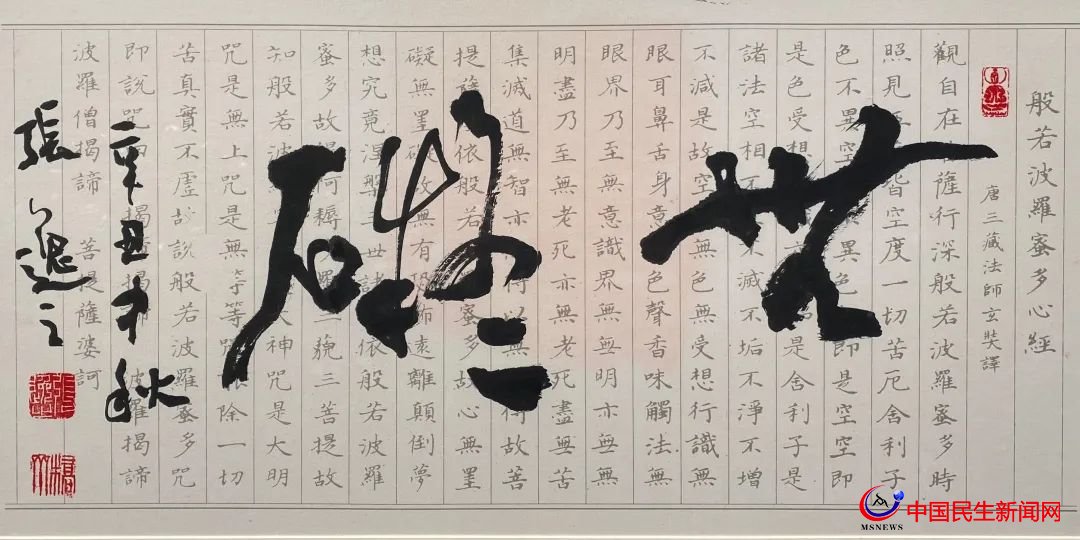 般若波羅蜜多心經
唐三藏法師玄奘譯
觀自在薩行深般若波羅蜜多時
照見皆空度一切苦厄舍利子
色不異空異色即是空空即
是色受想是舍利子是
諸法空相不不滅不垢不淨不增
不減是故空無色無受想行識無
眼耳鼻舌身意色聲香味觸法無
眼界乃至無意識界無無明亦無無
明盡乃至無老死亦無老死盡無苦
集滅道無智亦得以無得故菩
提薩依般若蜜多故心無罣
礙無罣礙故無有恐怖遠離顛倒夢
想究竟涅槃世諸依般若波羅
蜜多故得阿耨羅三藐三菩提故
知般若波大神咒是大明
咒是無上咒是無等等咒除一切
苦真實不虛故說般若波羅蜜多咒
即說咒曰揭揭諦波羅揭諦
波羅僧揭諦 菩提薩婆訶
無礙
辛丑中秋
張逸之
中国民生新闻网
MSNEWS